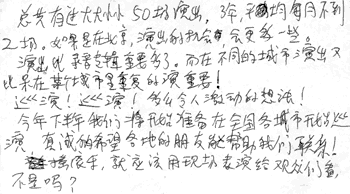 总共有过大大小小50场演出，3年，平均每月不到
2场。如果是在北京，演出的机会会更多一些。
演出比录音重要多了。而在不同的城市演出又
比呆在某个城市里重复的演重要！
巡演！巡演！多么令人激动的想法！
今年下半年我们将开始准备在全国各城市开始巡
演 真诚的希望各地的朋友能帮助我们联系！
摇滚乐手，就应该用现场表演给观众们看，
不是吗？